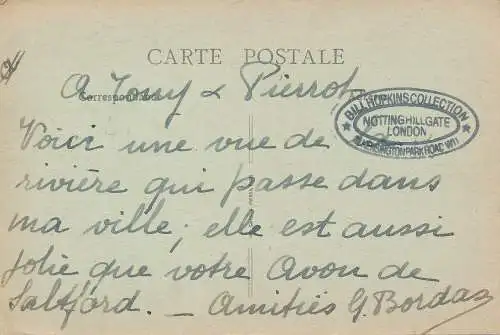 CARTE POSTALE
A Tony & Pierrot
Correspondance
BILL HOPKINS COLLECTION
NOTTINGHILLGATE
LONDON
KENSINGTON PARK ROAD W11
Voici une vue de la
rivière qui passe dans
ma ville; elle est aussi
jolie que votre Avon de
Saltford. — Amitiés G. Bordas